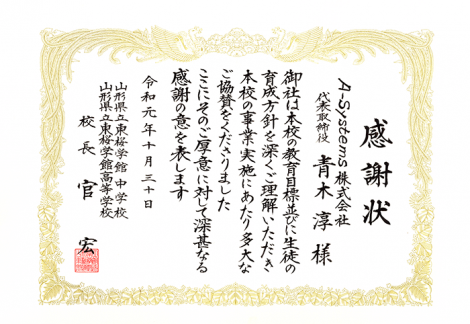 感謝状
A-Systems株式会社
代表取締役 青木淳様
御社は本校の教育目標並びに生徒の
育成方針を深くご理解いただき
本校の事業実施にあたり多大な
ご協賛をくださりました
ここにそのご厚意に対して深甚なる
感謝の意を表します
令和元年十月三十日
山形県立東桜学館中学校
山形県立東桜学館高等学校
校長 官 宏